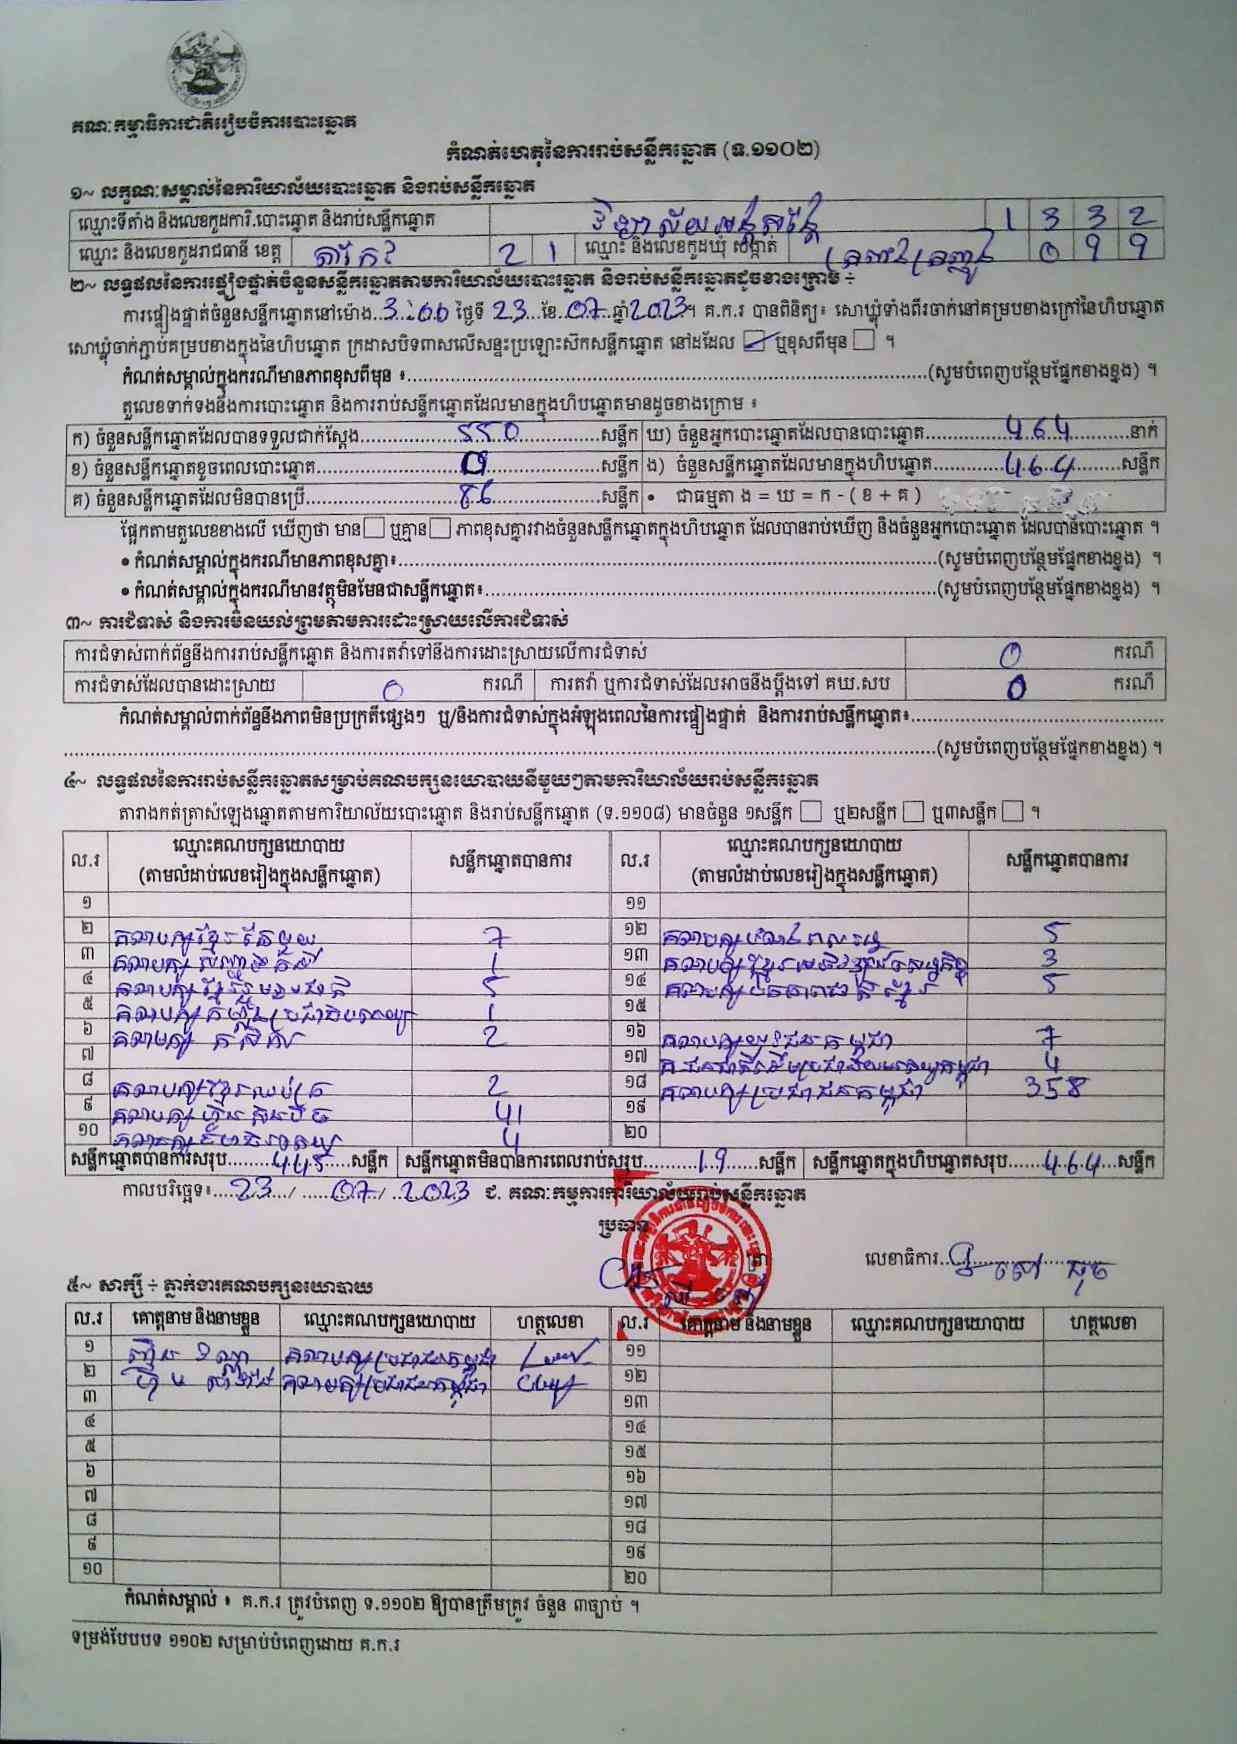 គណៈកម្មាធិការជាតិរៀបចំការបោះឆ្នោត
កំណត់ហេតុនៃការរាប់សន្លឹកឆ្នោត (ទ.១១០២)
១~ លក្ខណៈសម្គាល់នៃការិយាល័យបោះឆ្នោត និងរាប់សន្លឹកឆ្នោត
ឈ្មោះទីតាំង និងលេខកូដការិ.បោះឆ្នោត និងរាប់សន្លឹកឆ្នោត វិទ្យាល័យ 1 3 3 2
ឈ្មោះ និងលេខកូដរាជធានី ខេត្ត តាកែវ 2 1 ឈ្មោះ និងលេខកូដឃុំ សង្កាត់ 0 9 9
២~ លទ្ធផលនៃការផ្ទៀងផ្ទាត់ចំនួនសន្លឹកឆ្នោតតាមការិយាល័យបោះឆ្នោត និងរាប់សន្លឹកឆ្នោតដូចខាងក្រោម ÷
ការផ្ទៀងផ្ទាត់ចំនួនសន្លឹកឆ្នោតនៅម៉ោង..3:00 ថ្ងៃទី 23 ...ខែ..07..ឆ្នាំ2023។ គ.ក.រ បានពិនិត្យ៖ សោឃ្លុំទាំងពីរចាក់នៅគម្របខាងក្រៅនៃហិបឆ្នោត
សោឃ្លុំចាក់ភ្ជាប់គម្របខាងក្នុងនៃហិបឆ្នោត ក្រដាសបិទពាសលើសន្ទះប្រឡោះស៊កសន្លឹកឆ្នោត នៅដដែល ☑ ឬខុសពីមុន ☐ ។
កំណត់សម្គាល់ក្នុងករណីមានភាពខុសពីមុន ៖.....(សូមបំពេញបន្ថែមផ្នែកខាងខ្នង) ។
តួលេខទាក់ទងនឹងការបោះឆ្នោត និងការរាប់សន្លឹកឆ្នោតដែលមានក្នុងហិបឆ្នោតមានដូចខាងក្រោម ៖
ក) ចំនួនសន្លឹកឆ្នោតដែលបានទទួលជាក់ស្តែង.....550.....សន្លឹក ឃ) ចំនួនអ្នកបោះឆ្នោតដែលបានបោះឆ្នោត.....464.....នាក់
ខ) ចំនួនសន្លឹកឆ្នោតខូចពេលបោះឆ្នោត.....0.....សន្លឹក ង) ចំនួនសន្លឹកឆ្នោតដែលមានក្នុងហិបឆ្នោត.....464.....សន្លឹក
គ) ចំនួនសន្លឹកឆ្នោតដែលមិនបានប្រើ.....86.....សន្លឹក • ជាធម្មតា ង = ឃ = ក - ( ខ + គ )
ផ្អែកតាមតួលេខខាងលើ ឃើញថា មាន☐ ឬគ្មាន☐ ភាពខុសគ្នារវាងចំនួនសន្លឹកឆ្នោតក្នុងហិបឆ្នោត ដែលបានរាប់ឃើញ និងចំនួនអ្នកបោះឆ្នោត ដែលបានបោះឆ្នោត ។
• កំណត់សម្គាល់ក្នុងករណីមានភាពខុសគ្នា៖.....(សូមបំពេញបន្ថែមផ្នែកខាងខ្នង) ។
• កំណត់សម្គាល់ក្នុងករណីមានវត្ថុមិនមែនជាសន្លឹកឆ្នោត៖.....(សូមបំពេញបន្ថែមផ្នែកខាងខ្នង) ។
៣~ ការជំទាស់ និងការមិនយល់ព្រមតាមការដោះស្រាយលើការជំទាស់
ការជំទាស់ពាក់ព័ន្ធនឹងការរាប់សន្លឹកឆ្នោត និងការតវ៉ាទៅនឹងការដោះស្រាយលើការជំទាស់ 0 ករណី
ការជំទាស់ដែលបានដោះស្រាយ 0 ករណី ការតវ៉ា ឬការជំទាស់ដែលអាចនឹងប្តឹងទៅ គឃ.សប 0 ករណី
កំណត់សម្គាល់ពាក់ព័ន្ធនឹងភាពមិនប្រក្រតីផ្សេងៗ ឬ/និងការជំទាស់ក្នុងអំឡុងពេលនៃការផ្ទៀងផ្ទាត់ និងការរាប់សន្លឹកឆ្នោត៖.....
.....(សូមបំពេញបន្ថែមផ្នែកខាងខ្នង) ។
៤~ លទ្ធផលនៃការរាប់សន្លឹកឆ្នោតសម្រាប់គណបក្សនយោបាយនីមួយៗតាមការិយាល័យរាប់សន្លឹកឆ្នោត
តារាងកត់ត្រាសំឡេងឆ្នោតតាមការិយាល័យបោះឆ្នោត និងរាប់សន្លឹកឆ្នោត (ទ.១១០៨) មានចំនួន ១សន្លឹក ☐ ឬ២សន្លឹក ☐ ឬ៣សន្លឹក ☐ ។
ល.រ ឈ្មោះគណបក្សនយោបាយ (តាមលំដាប់លេខរៀងក្នុងសន្លឹកឆ្នោត) សន្លឹកឆ្នោតបានការ ល.រ ឈ្មោះគណបក្សនយោបាយ (តាមលំដាប់លេខរៀងក្នុងសន្លឹកឆ្នោត) សន្លឹកឆ្នោតបានការ
១ ១១
២ គណបក្សខ្មែរតែមួយ 7 ១២ គណបក្ស 5
៣ គណបក្ស 1 ១៣ គណបក្ស 3
៤ គណបក្ស 5 ១៤ គណបក្ស 5
៥ គណបក្សកម្លាំងប្រជាធិបតេយ្យ 1 ១៥
៦ គណបក្ស កសិករ 2 ១៦ គណបក្សយុវជនកម្ពុជា 7
៧ ១៧ គ.ជនជាតិដើមប្រជាធិបតេយ្យកម្ពុជា 4
៨ គណបក្សខ្មែរឈប់ក្រ 2 ១៨ គណបក្សប្រជាជនកម្ពុជា 358
៩ គណបក្សហ្វ៊ុនស៊ិនប៉ិច 41 ១៩
១០ គណបក្ស 4 ២០
សន្លឹកឆ្នោតបានការសរុប.....445.....សន្លឹក សន្លឹកឆ្នោតមិនបានការពេលរាប់សរុប.....19.....សន្លឹក សន្លឹកឆ្នោតក្នុងហិបឆ្នោតសរុប.....464...សន្លឹក
កាលបរិច្ឆេទ៖...23.../...07/..2023 ជ. គណៈកម្មការការិយាល័យរាប់សន្លឹកឆ្នោត
ប្រធាន ត្រា លេខាធិការ.....
៥~ សាក្សី ÷ ភ្នាក់ងារគណបក្សនយោបាយ
ល.រ គោត្តនាម និងនាមខ្លួន ឈ្មោះគណបក្សនយោបាយ ហត្ថលេខា ល.រ គោត្តនាម និងនាមខ្លួន ឈ្មោះគណបក្សនយោបាយ ហត្ថលេខា
១ គណបក្សប្រជាជនកម្ពុជា ១១
២ គណបក្សប្រជាជនកម្ពុជា ១២
៣ ១៣
៤ ១៤
៥ ១៥
៦ ១៦
៧ ១៧
៨ ១៨
៩ ១៩
១០ ២០
កំណត់សម្គាល់ ៖ គ.ក.រ ត្រូវបំពេញ ទ.១១០២ ឱ្យបានត្រឹមត្រូវ ចំនួន ៣ច្បាប់ ។
ទម្រង់បែបបទ ១១០២ សម្រាប់បំពេញដោយ គ.ក.រ